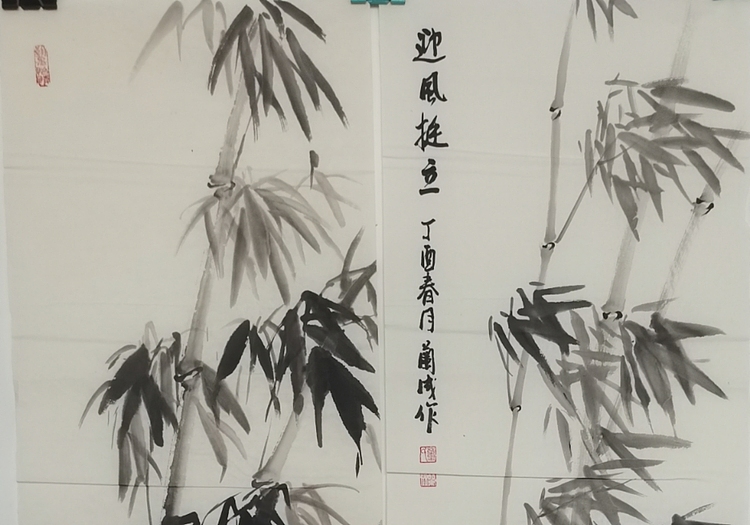 迎风挺立
丁酉春月兰成作